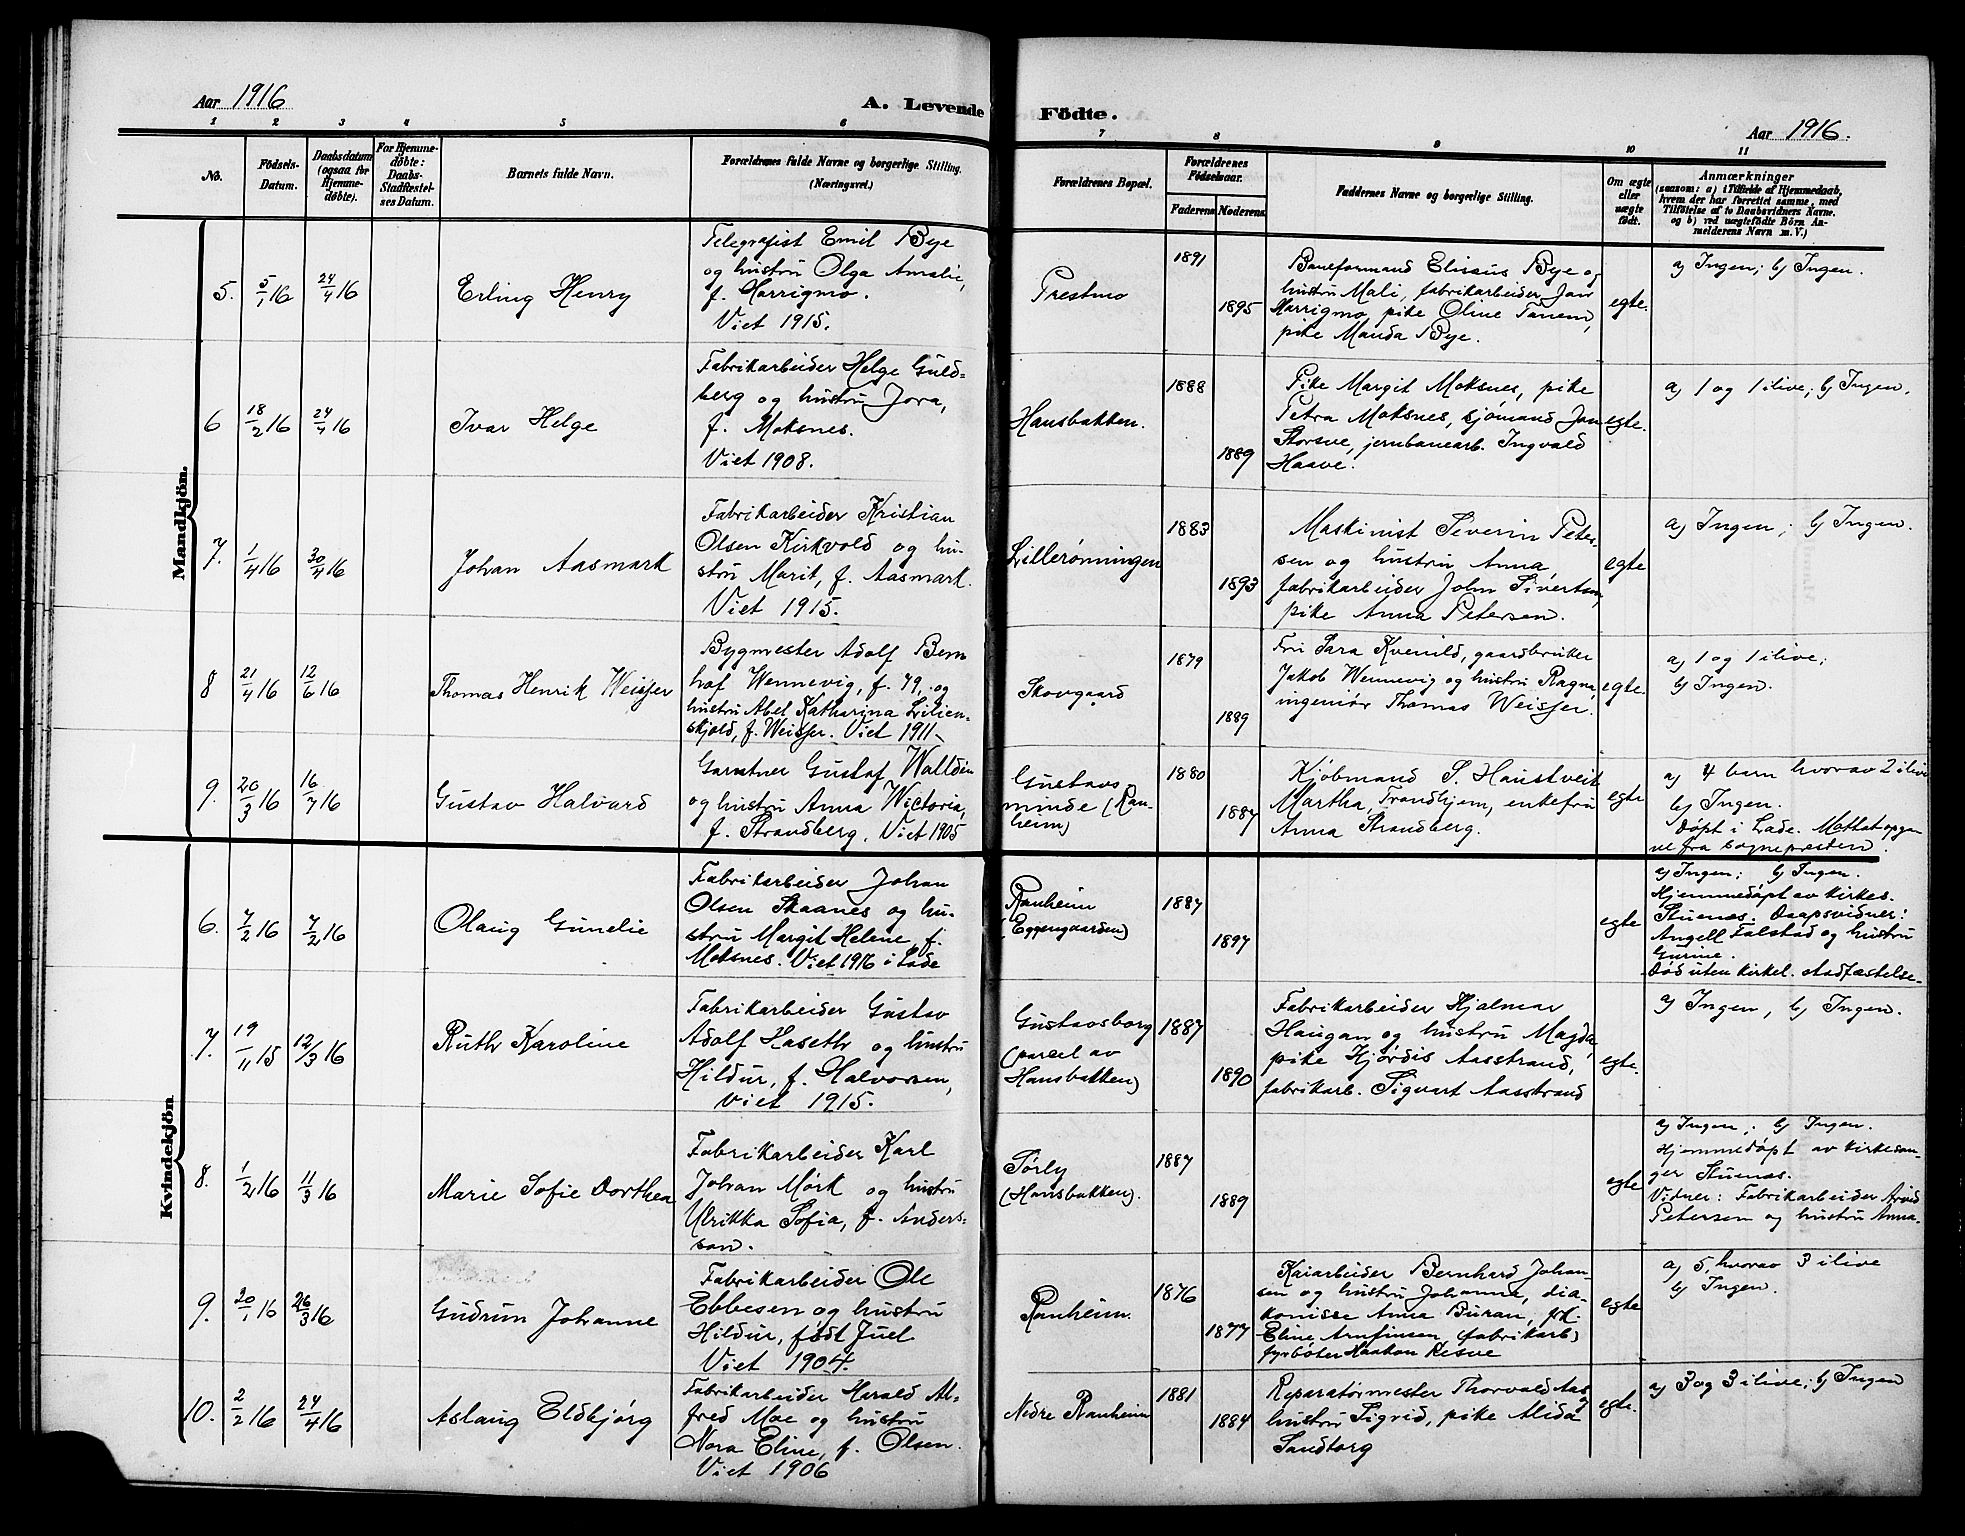 Aar 1916
A. Levende
1 2 3 4 5 6
No.
Fødsels-
Datum.
Daabsdatum
(ogsaa for
Hjemme-
døbte).
For Hjemme-
døbte:
Daabs-
Stadfæstel-
ses Datum.
Barnets fulde Navn.
Forældrenes fulde Navne og borgerlige Stilling.
(Næringsvei.)
Mandkjön.
5. 5/1 16 24/4 16 Erling Henry
Telegrafist Emil Bye
og hustru Olga Amalie,
f. Harrigmo.
Viet 1915.
6 18/2 16 24/4 16 Ivar Helge
Fabrikarbeider Helge Guld-
berg og hustru Jora,
f. Moksnes.
Viet 1908.
7. 1/4 16 30/4 16 Johan Aasmark
Fabrikarbeider Kristian
Olsen Kirkvold og hu-
stru Marit, f. Aasmark.
Viet 1915.
8 21/4 16 12/6 16 Thomas Henrik Weisser
Bygmester Adolf Bern
hof Wennevig, f. 79, og
hustru Abel Katharina Lilien-
skjold, f. Weisser. Viet 1911
9. 20/3 16 16/7 16 Gustav Halvard
Gartner Gustaf Walldén
og hustru Anna Wictoria,
f. Strandberg. Viet 1905
Kvindekjön
6. 7/2 16 7/2 16 Olaug Gunelie
Fabrikarbeider Johan
Olsen Skaanes og hu-
stru Margit Helene, f.
Moksnes. Viet 1916 i Lade
7. 19/11 15 12/3 16 Ruth Karoline
Fabrikarbeider Gustav
Adolf Haseth og hustru
Hildur, f. Halvorsen,
Viet 1915.
8. 1/2 16 11/3 16 Marie Sofie Dorthea
Fabrikarbeider Karl
Johan Mørk og hustru
Ulrikka Sofia, f. Anders-
son.
9. 20/1 16 26/3 16 Gudrun Johanne
Fabrikarbeider Ole
Ebbesen og hustru
Hildur, født Juel
Viet 1904.
10. 2/2 16 24/4 16 Aslaug Eldbjørg
Fabrikarbeider Harald Al-
fred Moe og hustru
Nora Eline, f. Olsen.
Viet 1906
Födte.
Aar 1916.
7 8 9 10 11
Forældrenes Bopæl.
Forældrenes
Fødselsaar.
Faderens Moderens
Faddernes Navne og borgerlige Stilling.
Om ægte
eller
uægte
født.
Anmærkninger
(saasom: a) i Tilfælde af Hjemmedaab,
hvem der har forrettet samme, med
Tilföielse af to Daabsvidners Navne.
og b) ved uægtefödte Börn An-
melderens Navn m. V.)
Prestmo 1891 1895
Baneformand Elisæus Bye og
hustru Mali, fabrikarbeider Jan
Harrigmo, pike Oline Tanem,
pike Manda Bye.
egte.
a) Ingen; b) Ingen.
Hansbakken. 1888 1889
Pike Margit Moksnes, pike
Petra Moksnes, sjömand Jan
Storsve, jernbanearb. Ingvald
Haave.
egte.
a) 1 og 1 ilive; b) Ingen.
Lillerønningen 1883 1893
Maskinist Severin Peter-
sen og hustru Anna,
fabrikarbeider John Sivertsen,
pike Anna Petersen.
egte
a) Ingen; b) Ingen.
Skovgaard 1879 1889
Fru Sara Kvenild, gaardbruker
Jakob Wennevig og hustru Ragna,
ingeniør Thomas Weisser.
egte.
a) 1 og 1 ilive;
b) Ingen.
Gustavs
minde (Ran-
heim) 1880 1887
Kjöbmand S. Haustveit
Martha, Trondhjem, enkefru
Anna Strandberg.
egte
a) 4 barn hvorav 2 ilive
b) Ingen.
Døpt i Lade. Mottat opga
ve fra sognepresten.
Ranheim
(Eggengaarden) 1887 1897
egte
a) Ingen; b) Ingen.
Hjemmedöpt av kirkes.
Stuenæs. Daapsvidner:
Angell Falstad og hustru
Gurine.
Död uten kirkel. stadfæstelse-
Gustavsborg
(parcel av
Hansbakken) 1887 1890
Fabrikarbeider Hjalmar
Haugan og hustru Magda,
pike Hjørdis Aasstrand,
fabrikarb. Sigvart Aasstrand
egte.
a) Ingen, b) Ingen.
Sørly
(Hansbakken). 1887 1889
egte
a) Ingen; b) Ingen.
Hjemmedöpt av kirkesan-
ger Stuenæs.
Vidner: Fabrikarbeider Arvid
Petersen og hustru Anna.
Ranheim. 1876 1877
Kaiarbeider Bernhard Johan-
sen og hustru Johanna, dia-
konisse Anna Buran, frk.
Eline Arnfinsen, (fabrikarb)
fyrbøter Haakon Resve
egte
a) 5, hvorav 3 ilive
b) Ingen.
Nedre Ranheim 1881 1884
Reparatørmester Thorvald Aas og
hustru Sigrid, pike Alida
Sandtorg
egte.
a) 3 og 3 ilive; b) Ingen